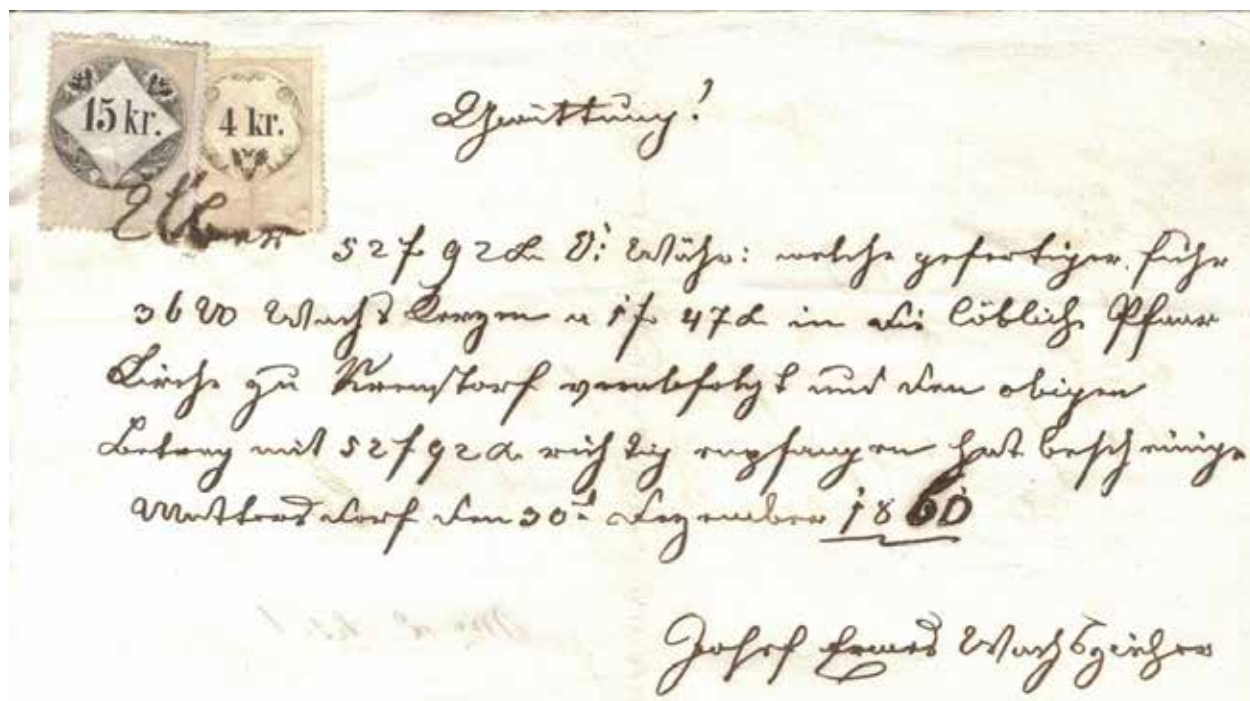 15 kr.
4 kr.
Quittung!
Über 52 f 92 k Ö: Währ: welche gefertigter führ
36 ℔ Wachs Kerzen a 1 f 47 k in die löbliche Pfaar
Kirche zu Krenstorf verabfolgt und den obigen
Betrag mit 52 f 92 k richtig empfangen hat bescheinige
Mattersdorf den 30t Dezember 1860
Josef Wachszieher